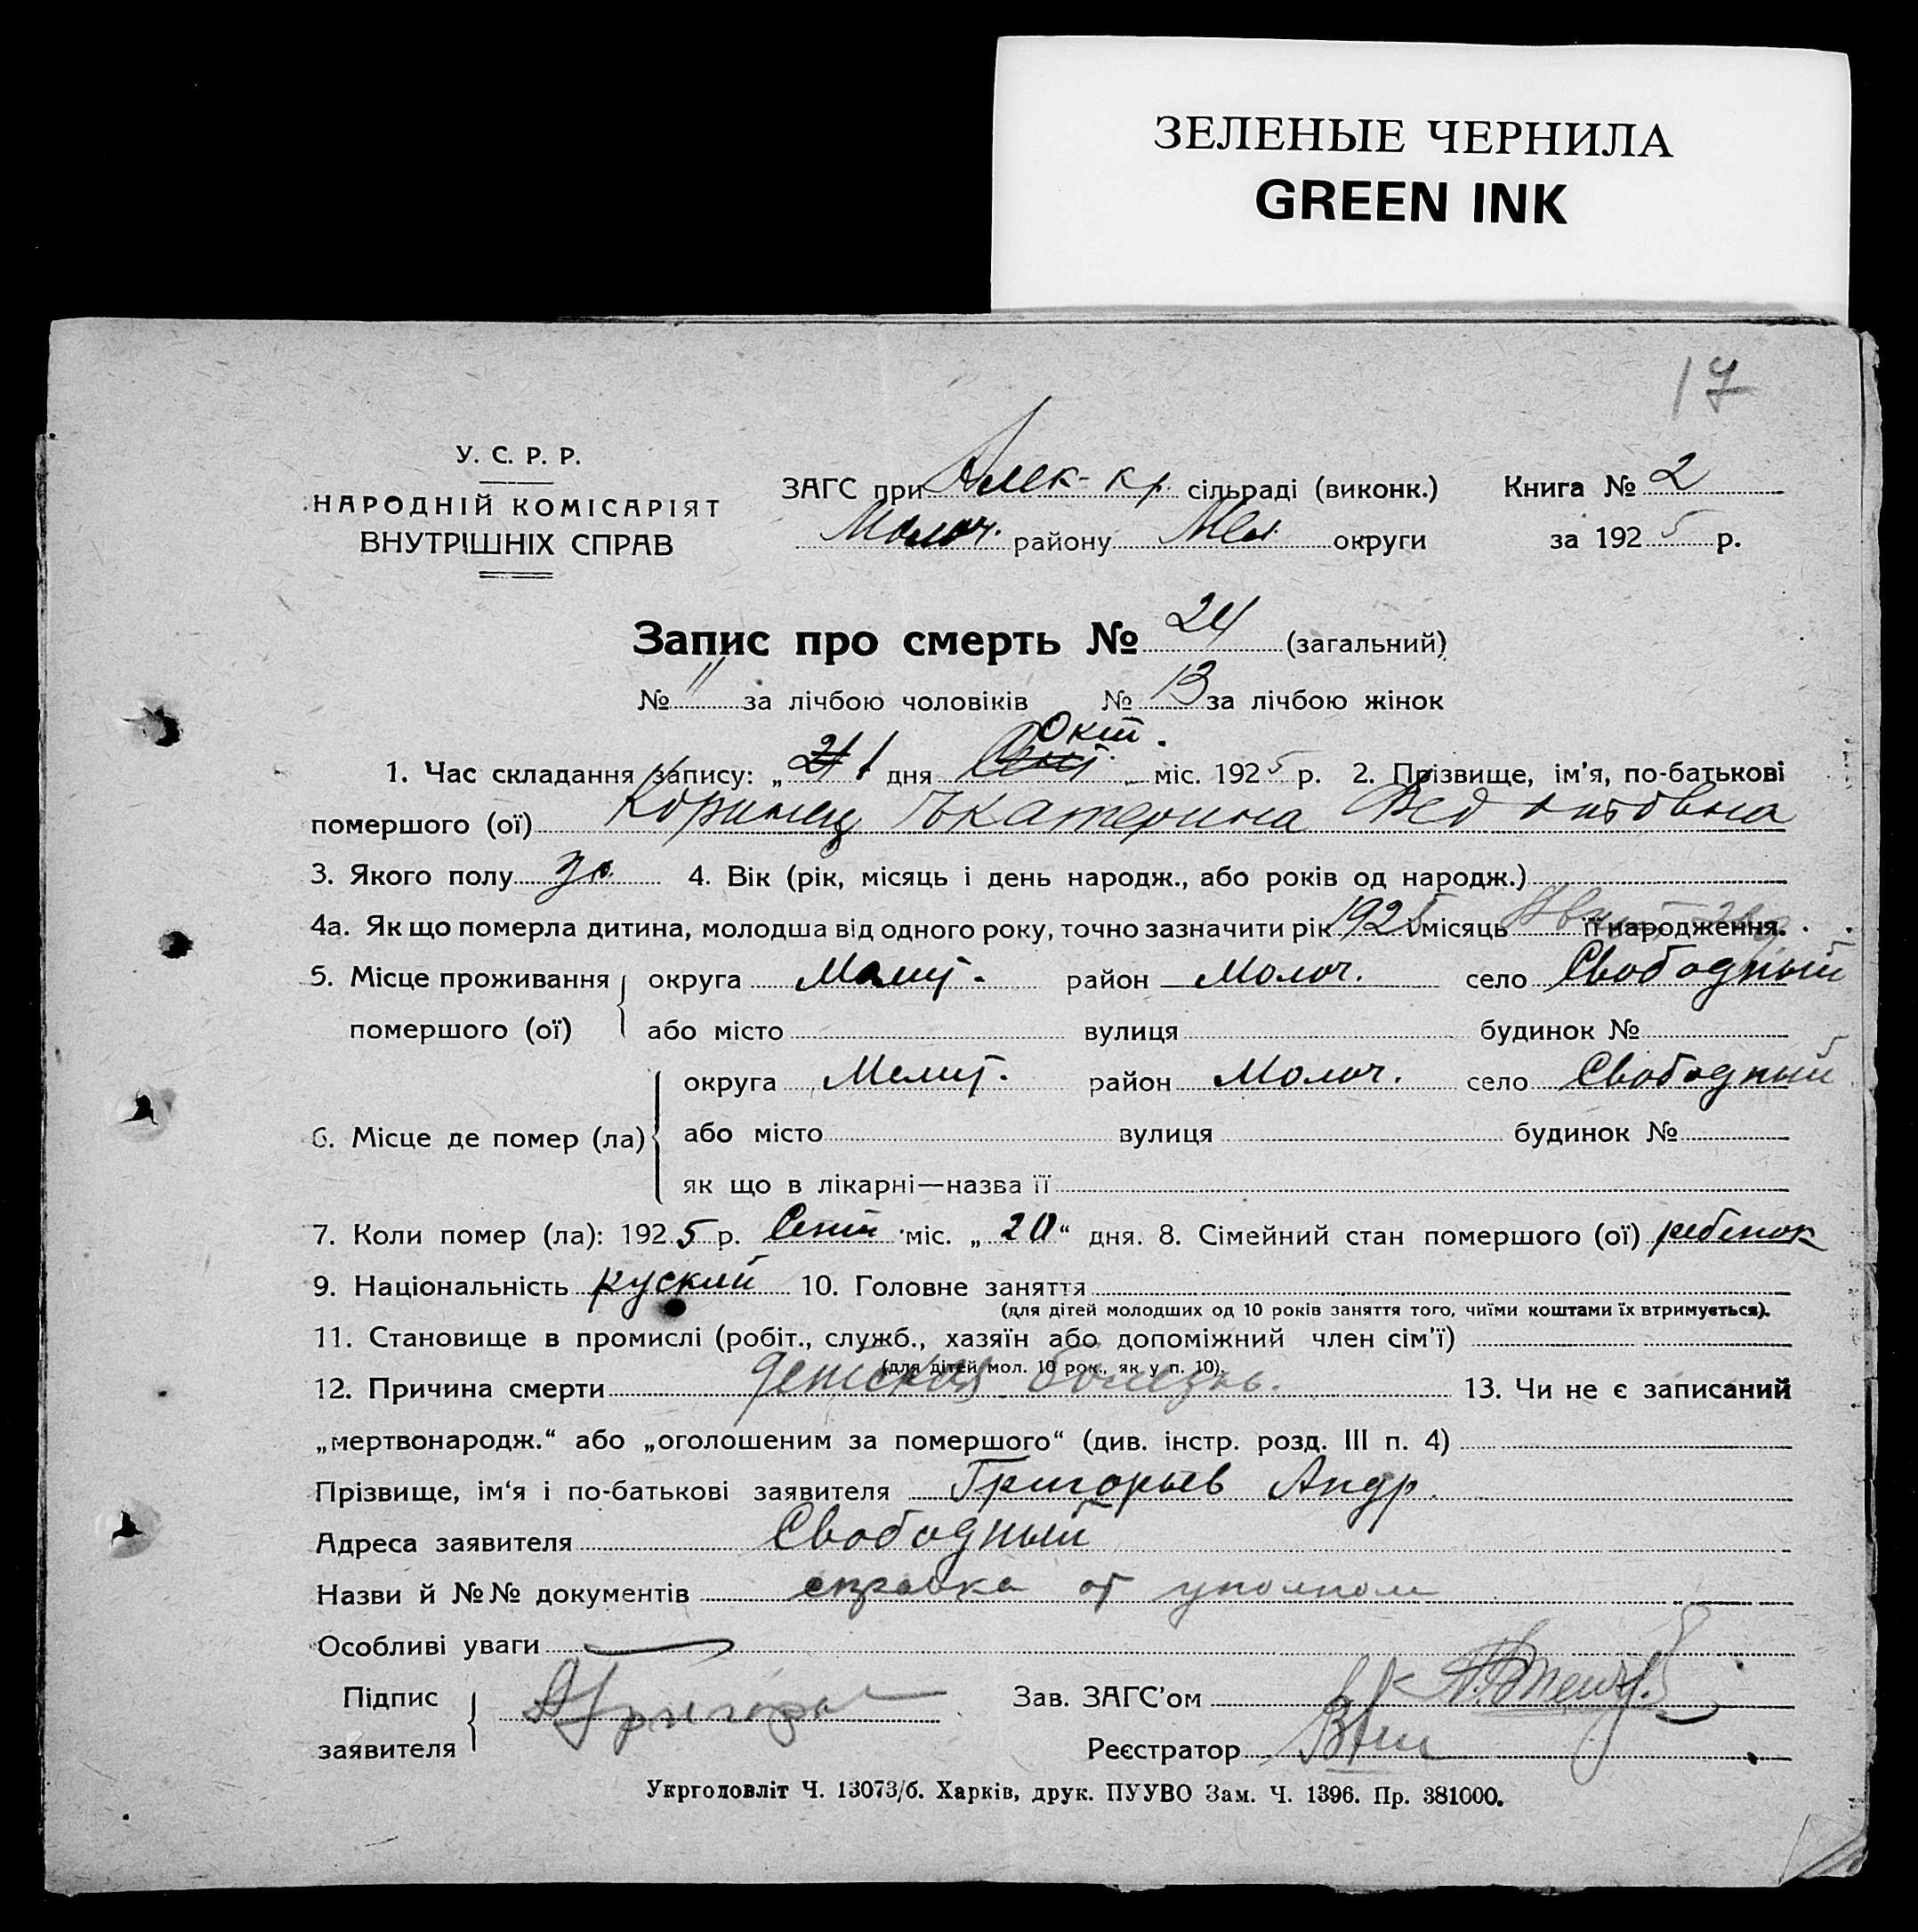 ЗЕЛЕНЫЕ ЧЕРНИЛА
GREEN INK
17
У. С. Р. Р.
НАРОДНІЙ КОМІСАРІЯТ
ВНУТРІШНІХ СПРАВ
ЗАГС при Алек-кр. сільраді (виконк.) Книга № 2
Молоч. району Мел. округи за 1925 р.
Запис про смерть № 24 (загальний)
№ 11 за лічбою чоловіків № 13 за лічбою жінок
Окт.
1. Час складання запису: „ 1 дня міс. 1925 р. 2. Прізвище, ім'я, по-батькові
помершого (ої) Екатерина
3. Якого полу ж. 4. Вік (рік, місяць і день народж., або років од народж.)
4а. Як що померла дитина, молодша від одного року, точно зазначити рік 1925 місяць її народження.
5. Місце проживання помершого (ої) округа Мелит. район Молоч. село Свободный
або місто вулиця будинок №
6. Місце де помер (ла) округа Мелит. район Молоч. село Свободный
або місто вулиця будинок №
як що в лікарні—назва її
7. Коли помер (ла): 1925 р. Сент. міс. „20“ дня. 8. Сімейний стан помершого (ої) ребенок
9. Національність руский 10. Головне заняття
(для дітей молодших од 10 років заняття того, чиїми коштами їх втримується).
11. Становище в промислі (робіт., служб., хазяїн або допоміжний член сім'ї)
(для дітей мол. 10 рок., як у п. 10).
12. Причина смерти детская болезнь. 13. Чи не є записаний
„мертвонародж.“ або „оголошеним за помершого“ (див. інстр. розд. III п. 4)
Прізвище, ім'я і по-батькові заявителя Григорьев Андр.
Адреса заявителя Свободный
Назви й №№ документів справка от уполном
Особливі уваги
Підпис заявителя АГригорь Зав. ЗАГС'ом
Реєстратор
Укрголовліт Ч. 13073/б. Харків, друк. ПУУВО Зам. Ч. 1396. Пр. 381000.